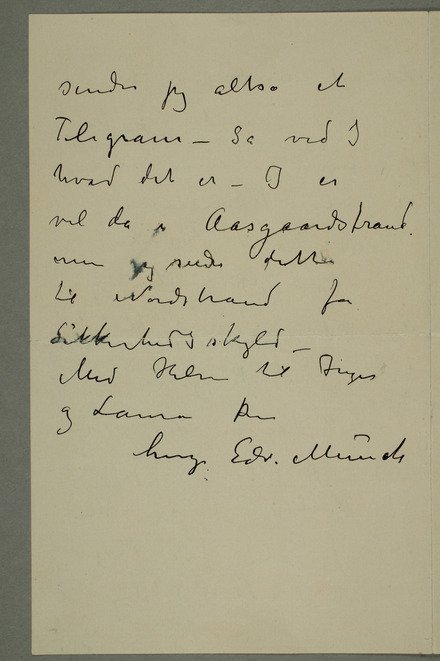 sender jeg altso et
Telegram – Så ved I
hvad det er – I er
vel da i Aasgaardstrand.
men jeg sender dette
til Nordstrand for
Sikkerheds skyld –
Med Hilsen til Inger
og Laura Din
heng. Edv. Munch